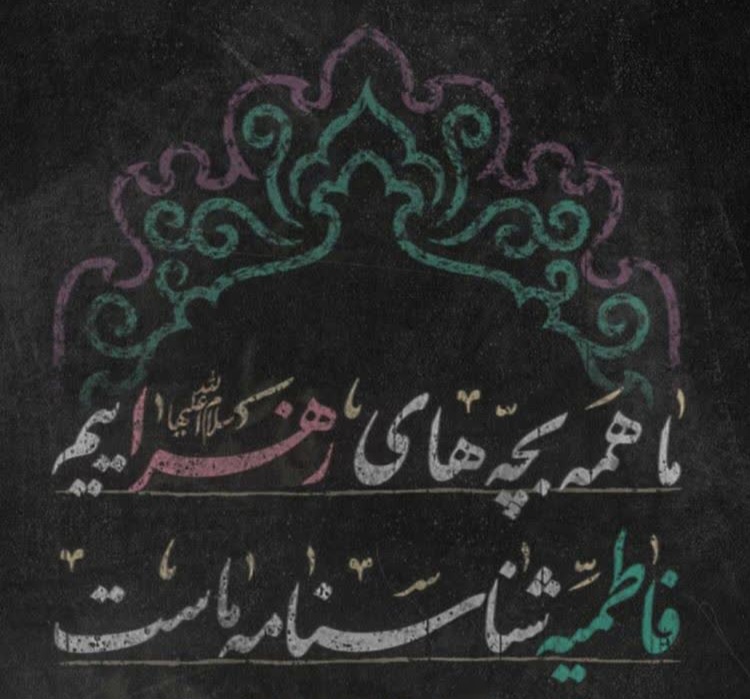 ما همه بچّه های زهرا سلام الله علیها ییم
فاطمیّه شناسنامه ماست